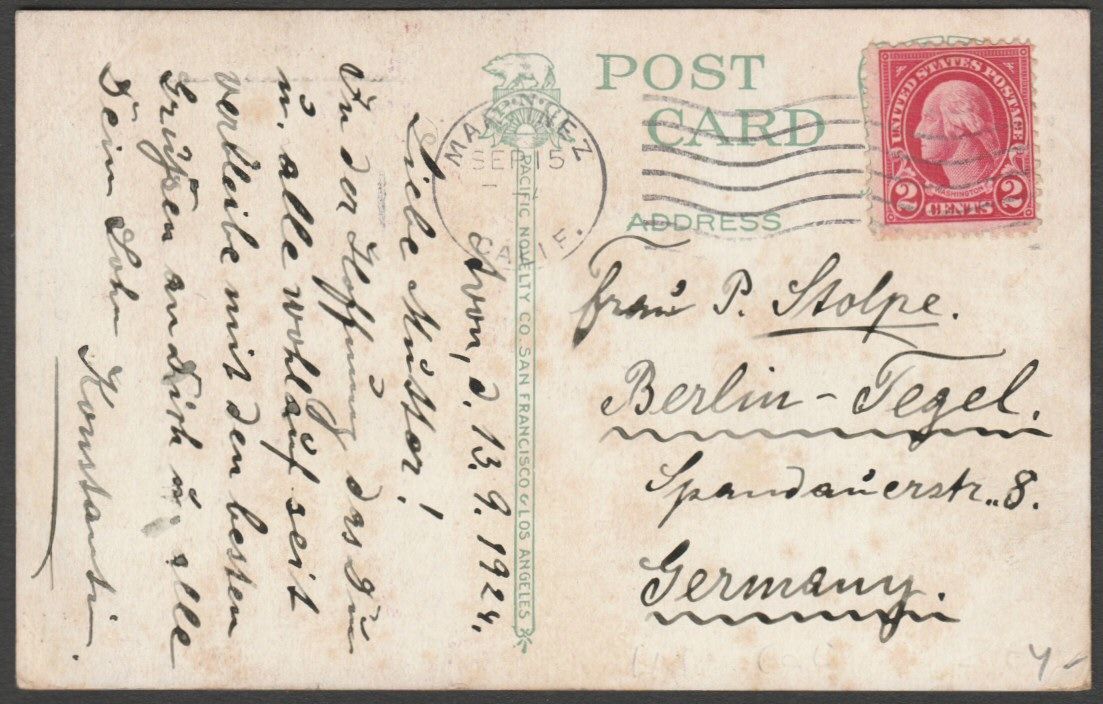 POST
CARD
ADDRESS
MARTINEZ
SEP 15
CALIF.
UNITED STATES POSTAGE
WASHINGTON
2 CENTS 2
PACIFIC NOVELTY CO. SAN FRANCISCO & LOS ANGELES
Avon, d. 13.9.1924.
Liebe Mutter!
In der Hoffnung das Du
u. alle wohlauf seit
verbleibe mit den besten
Grüßen an Dich u. alle
Dein Sohn Konstantin.
Frau P. Stolpe.
Berlin - Tegel.
Spandauerstr. 8.
Germany.